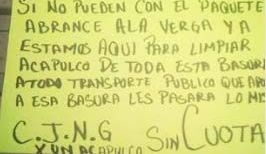 SI NO PUEDEN CON EL PAQUETE
ABRANCE ALA VERGA YA
ESTAMOS AQUI PARA LIMPIAR
ACAPULCO DE TODA ESTA BASURA
ATODO TRANSPORTE PUBLICO QUE
A ESA BASURA LES PASARA LO MIS
C.J.N.G SIN CUOTA
X UN ACAPULCO